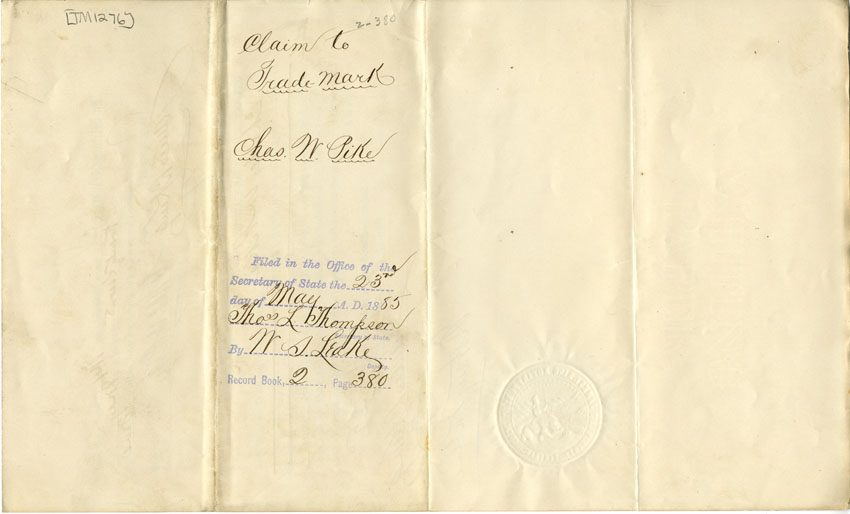 [TM1276]
2-380
Claim to
Trade Mark
Chas. W. Pike
Filed in the Office of the
Secretary of State the 23rd
day of May A. D. 1885
Thos L Thompson
Secretary of State
By W. S. Leake
Deputy
Record Book, 2, Page 380